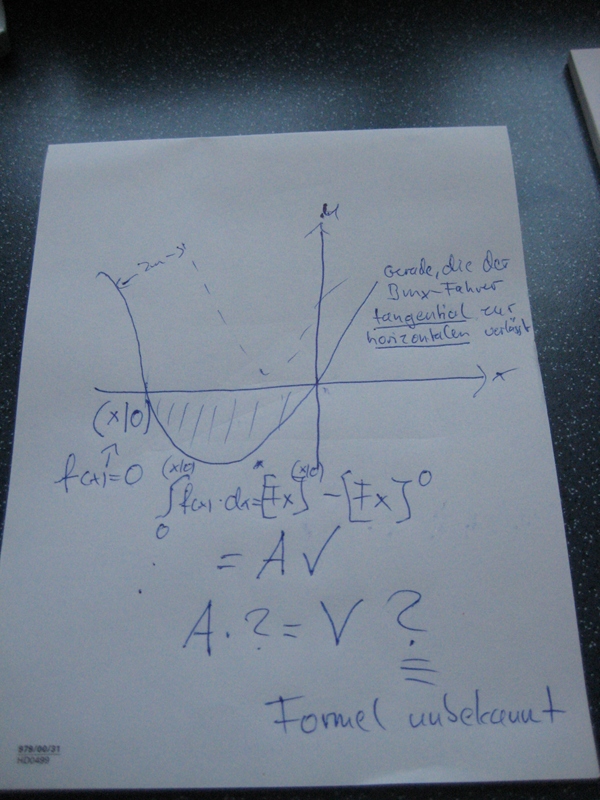 y
2m
Gerade, die der
Bmx-Fahrer
tangential zur
horizontalen verlässt
x
(x|0)
f(x)=0
(x|0) (x|0)
∫f(x)·dx=[Fx] -[Fx]⁰
0
= A√
A·?=V?
Formel unbekannt
579/00/31
HD0499